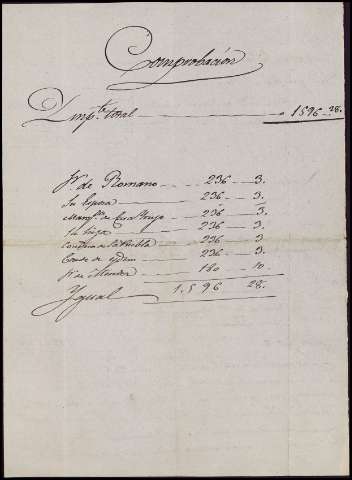 Comprobación
Impte. total 1596..28.
Sr. de Romano 236 3.
Su Esposa 236 3.
Marqs. de 236 3.
Su hija 236 3.
Condesa de 236 3.
Conde de 236 3.
Sr. de 180 10.
Ygual 1.596 28.